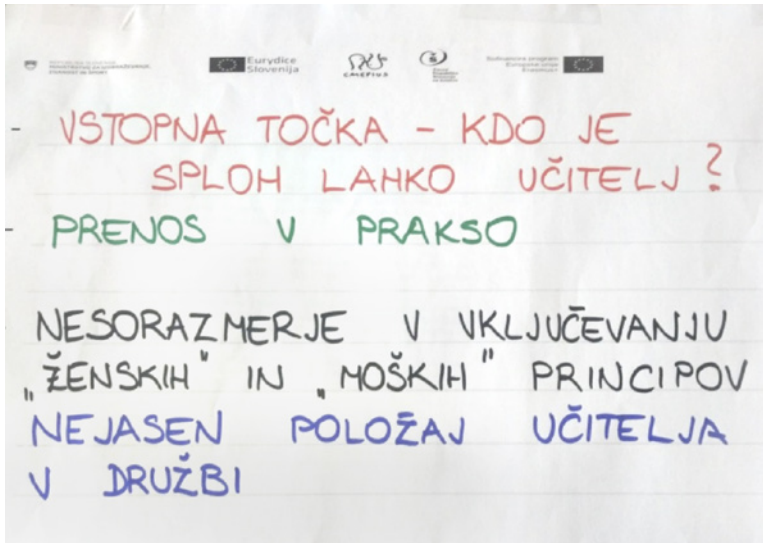 REPUBLIKA SLOVENIJA
Eurydice
Slovenija
CMEPIUS
VSTOPNA TOČKA – KDO JE
SPLOH LAHKO UČITELJ?
PRENOS V PRAKSO
NESORAZMERJE V VKLJUČEVANJU
„ŽENSKIH“ IN „MOŠKIH“ PRINCIPOV
NEJASEN POLOŽAJ UČITELJA
V DRUŽBI